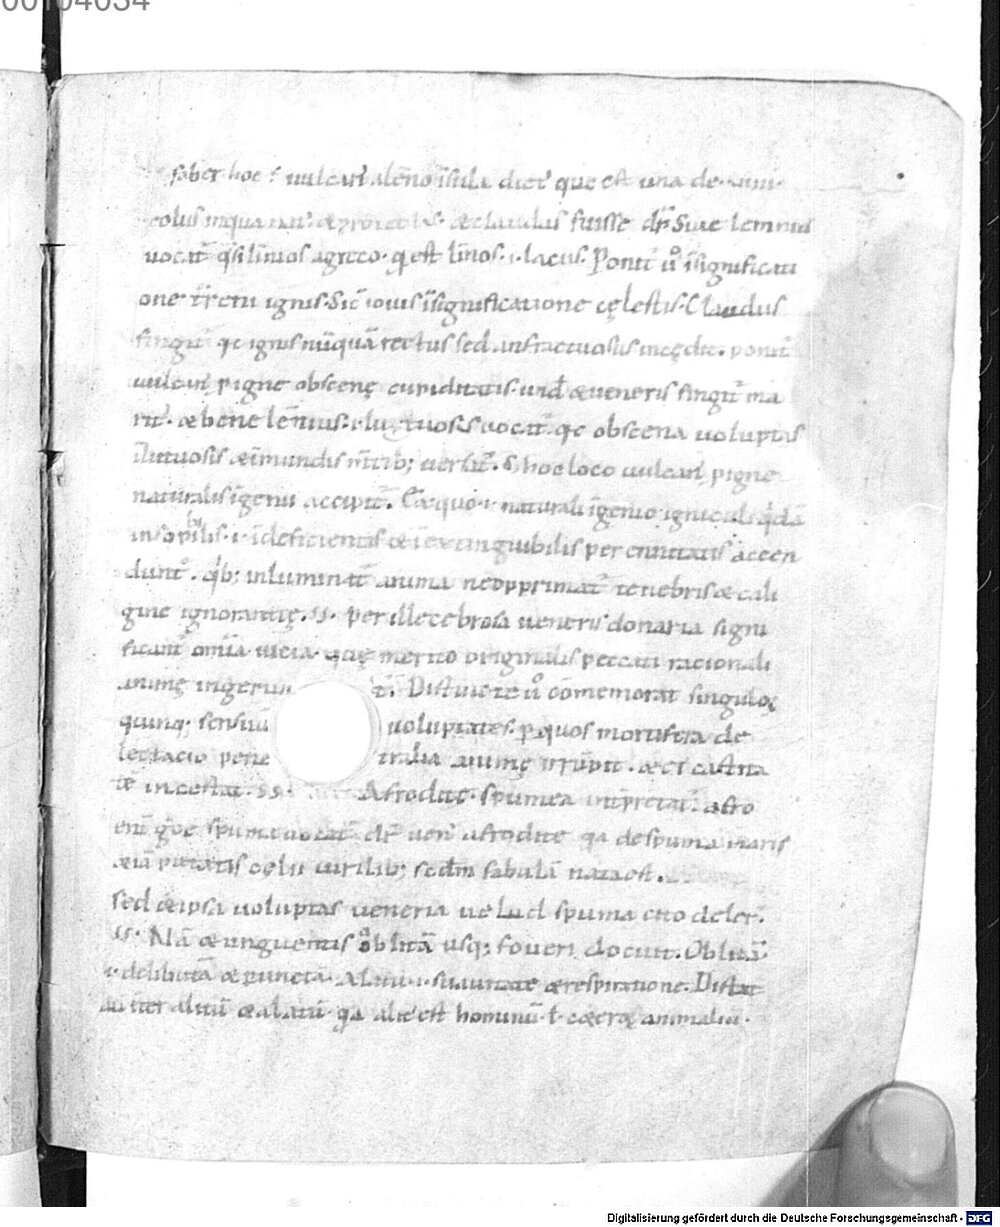 00104034
faber hoc ÷ vulcanꝰ a lēno īsula dicit᷑ que est una de
colus in qua
uocat᷑ q̄si limos a greco. q̄ est limos .i. lacus. Ponit᷑ ů īsignificati
one tr̄reni ignis. Sic̄ iouis īsignificatione cęlestis. Claudus
fingit᷑ qe ignis nūquā rectus sed anfractuosus incędit. ponit᷑
uulcanꝰ p igne obscenę cupiditatis. und̄ & ueneris fingit᷑ ma
rit᷑. & bene lēnius .i. lutuosus uocat᷑. qe obscena uoluptas
īlutuosis & īmundis m̄tib; uersat᷑. S; hoc loco uulcanꝰ p igne
naturalis īgenii accipit᷑. Ea quo .i. naturali īgenio igniculi q̄dā
insopibilis .i. īdeficientis & īextinguibilis perennitatis accen
dunt᷑. q̄b; inluminat᷑ anima ne opprimat᷑ tenebris & cali
gine ignorantię. SS. per illecebrosa ueneris donaria signi
ficant᷑ om̄ia uicia. quę merito originalis peccati racionali
animę ingerun t᷑. Distincte ů cōmemorat singuloꝝ
quinq; sensuū uoluptates. p quos mortifera de
lectacio pene tralia animę irrūpit. & ei castita
tē incestat. SS. Afrodite. spumea int̄pretat᷑. afro
eni᷑ gr̄ce spuma uocat᷑. dr̄ ueṅ afrodite qa de spuma maris
& iā putatis celu uirilib; scdm̄ fabulā nata est.
sed & ipsa uoluptas ueneria uelud spuma cito deler̄.
SS. Nā & unguentis oblitā usq; foueri docuit. Oblitā
.i. delibutā & punctā. Alitu .i. suauitate & respiratione. Distat
aū iter alitū & alatū. qa alit᷑ est hominū ł c&eroꝝ animaliū.
Digitalisierung gefördert durch die Deutsche Forschungsgemeinschaft - DFG